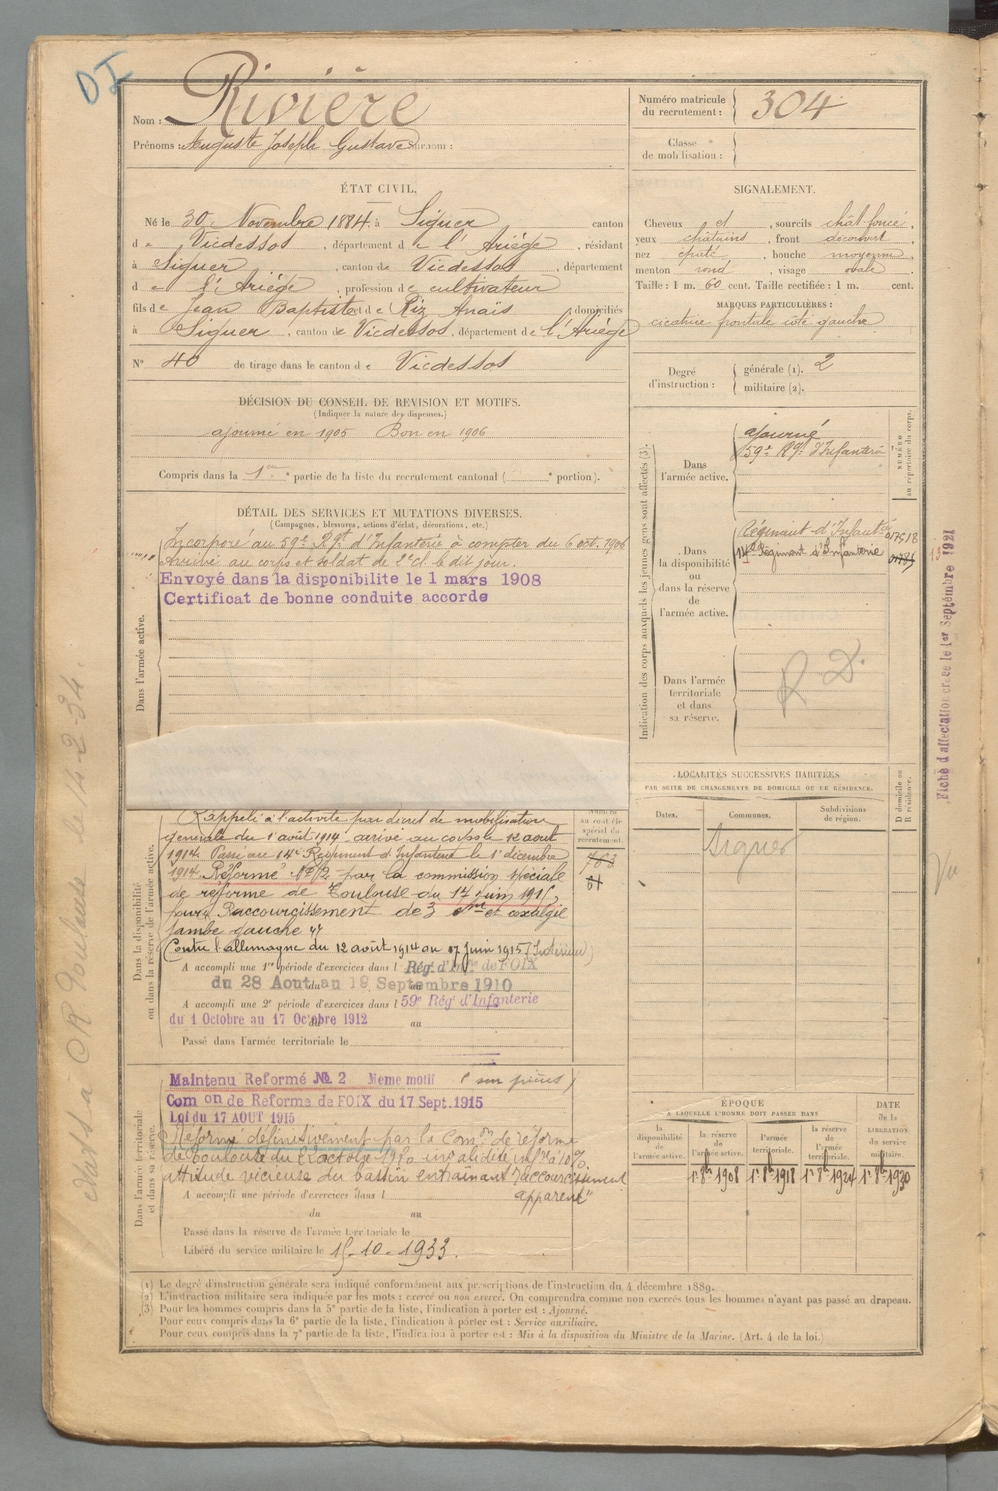 DI
Nom : Rivière
Prénoms : Auguste Joseph Gustave Surnom :
Numéro matricule du recrutement : 304
Classe de mobilisation :
ÉTAT CIVIL.
Né le 30 Novembre 1884, à Siguer canton
d e Vicdessos, département d e l'Ariège, résidant
à Siguer, canton de Vicdessos, département
d e l'Ariège, profession de cultivateur
fils de Jean Baptiste et de Riz Anaïs, domiciliés
à Siguer, canton de Vicdessos, département de l'Ariège
N° 40 de tirage dans le canton d e Vicdessos
SIGNALEMENT.
Cheveux et, sourcils chât. foncé,
yeux châtains, front découvert,
nez épaté, bouche moyenne,
menton rond, visage ovale
Taille : 1 m. 60 cent. Taille rectifiée : 1 m. cent.
MARQUES PARTICULIÈRES :
cicatrice frontale côté gauche
Degré d'instruction : générale (1). 2
militaire (2).
DÉCISION DU CONSEIL DE REVISION ET MOTIFS.
(Indiquer la nature des dispenses.)
ajourné en 1905 Bon en 1906
Compris dans la 1re partie de la liste du recrutement cantonal ( e portion).
DÉTAIL DES SERVICES ET MUTATIONS DIVERSES.
(Campagnes, blessures, actions d'éclat, décorations, etc.)
Dans l'armée active.
Incorporé au 59e Rgt d'Infanterie à compter du 6 oct. 1906
Arrivé au corps et soldat de 2e cl. le dit jour.
Envoyé dans la disponibilite le 1 mars 1908
Certificat de bonne conduite accorde
Indication des corps auxquels les jeunes gens sont affectés (3).
NUMÉRO au répertoire du corps.
Dans l'armée active.
ajourné
59e Rgt d'Infanterie
Dans la disponibilité ou dans la réserve de l'armée active.
Régiment d'Infanterie 01518
14e Régiment d'Infanterie
Dans l'armée territoriale et dans sa réserve.
R D.
Fiche d'affectation créée le 1er Septembre 1921
LOCALITÉS SUCCESSIVES HABITÉES
PAR SUITE DE CHANGEMENTS DE DOMICILE OU DE RÉSIDENCE.
Dates. Communes. Subdivisions de région. D domicile ou R résidence.
Siguer
Vu
Dans la disponibilité ou dans la réserve de l'armée active.
Rappelé à l'activité par décret de mobilisation
générale du 1 août 1914 arrivé au corps le 12 août
1914. Passé au 14e Régiment d'Infanterie le 1er décembre
1914. Réformé N° 2 par la commission spéciale
de réforme de Toulouse du 17 juin 1915,
pour Raccourcissement de 3 cm et coxalgie
jambe gauche
Contre l'allemagne du 12 août 1914 au 17 juin 1915 (Intérieur)
A accompli une 1re période d'exercices dans l Rég. d'Inf. de FOIX
du 28 Aout au 19 Septembre 1910
A accompli une 2e période d'exercices dans l 59e Rég. d'Infanterie
du 1 Octobre au 17 Octobre 1912
Passé dans l'armée territoriale le
Dans l'armée territoriale et dans sa réserve.
Maintenu Reformé № 2 Meme motif (sur pièces)
Com on de Reforme de FOIX du 17 Sept. 1915
Loi du 17 AOUT 1915
Réformé définitivement par la Comon de réforme
de Toulouse du 22 octobre 1930 invalidité inf. à 10 %.
attitude vicieuse du bassin entrainant raccourcissement
apparent"
A accompli une période d'exercices dans l
du au
Passé dans la réserve de l'armée territoriale le
Libéré du service militaire le 15-10-1933.
ÉPOQUE
A LAQUELLE L'HOMME DOIT PASSER DANS
la disponibilité de l'armée active.
la réserve de l'armée active.
l'armée territoriale.
la réserve de l'armée territoriale.
DATE de la LIBÉRATION du service militaire.
1er 8bre 1908 1er 8bre 1918 1er 8bre 1924 1er 8bre 1930
CR Toulouse le 14-2-34.
(1) Le degré d'instruction générale sera indiqué conformément aux prescriptions de l'instruction du 4 décembre 1889.
(2) L'instruction militaire sera indiquée par les mots : exercé ou non exercé. On comprendra comme non exercés tous les hommes n'ayant pas passé au drapeau.
(3) Pour les hommes compris dans la 5e partie de la liste, l'indication à porter est : Ajourné.
Pour ceux compris dans la 6e partie de la liste, l'indication à porter est : Service auxiliaire.
Pour ceux compris dans la 7e partie de la liste, l'indication à porter est : Mis à la disposition du Ministre de la Marine. (Art. 4 de la loi.)